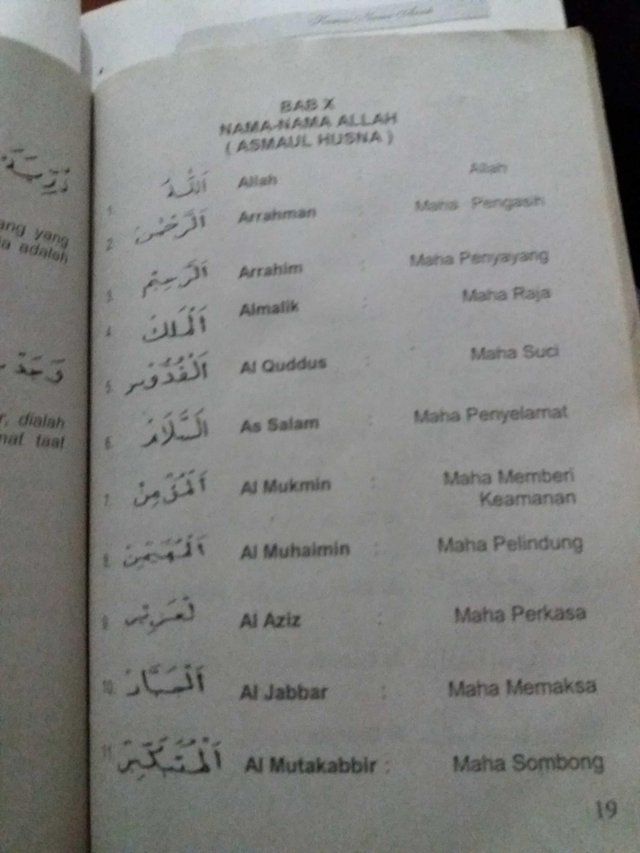 BAB X
NAMA-NAMA ALLAH
( ASMAUL HUSNA )
1. اَللّٰهُ Allah : Allah
2. اَلرَّحْمٰنُ Arrahman : Maha Pengasih
3. اَلرَّحِيْمُ Arrahim : Maha Penyayang
4. اَلْمَلِكُ Almalik : Maha Raja
5. اَلْقُدُّوْسُ Al Quddus : Maha Suci
6. اَلسَّلَامُ As Salam : Maha Penyelamat
7. اَلْمُؤْمِنُ Al Mukmin : Maha Memberi
Keamanan
8. اَلْمُهَيْمِنُ Al Muhaimin : Maha Pelindung
9. لْعَزِيْزُ Al Aziz : Maha Perkasa
10. اَلْجَبَّارُ Al Jabbar : Maha Memaksa
11. اَلْمُتَكَبِّرُ Al Mutakabbir : Maha Sombong
19
ang yang
ia adalah
r, dialah
mat taat